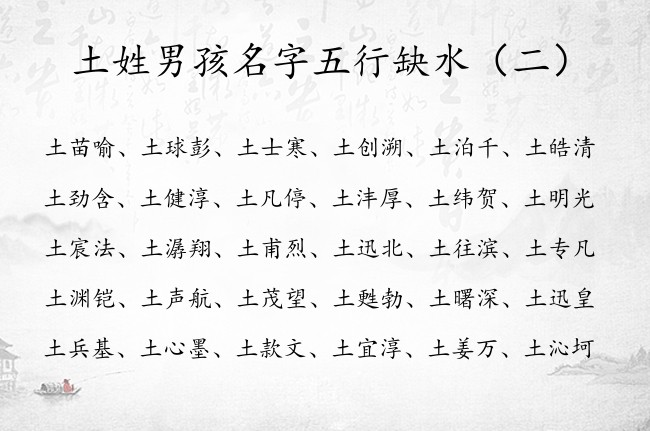 土姓男孩名字五行缺水（二）
土苗喻、土球彭、土士寒、土创溯、土泊千、土皓清
土劲含、土健淳、土凡停、土沣厚、土纬贺、土明光
土宸法、土潺翔、土甫烈、土迅北、土往滨、土专凡
土渊铠、土声航、土茂望、土甦勃、土曙深、土迅皇
土兵基、土心墨、土款文、土宜淳、土姜万、土沁坷